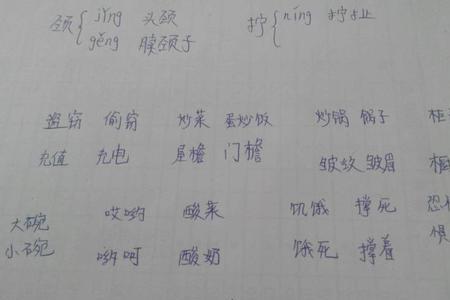 颈 jǐng 头颈 拧 níng 拧
gěng 脖颈子
盗窃 偷窃 炒菜 蛋炒饭 炒锅 锅子
充值 充电 屋檐 门檐 皱纹 皱眉
大碗 哎哟 酸菜 饥饿 撑死 恐
小碗 哟呵 酸奶 饿死 撑着 惧